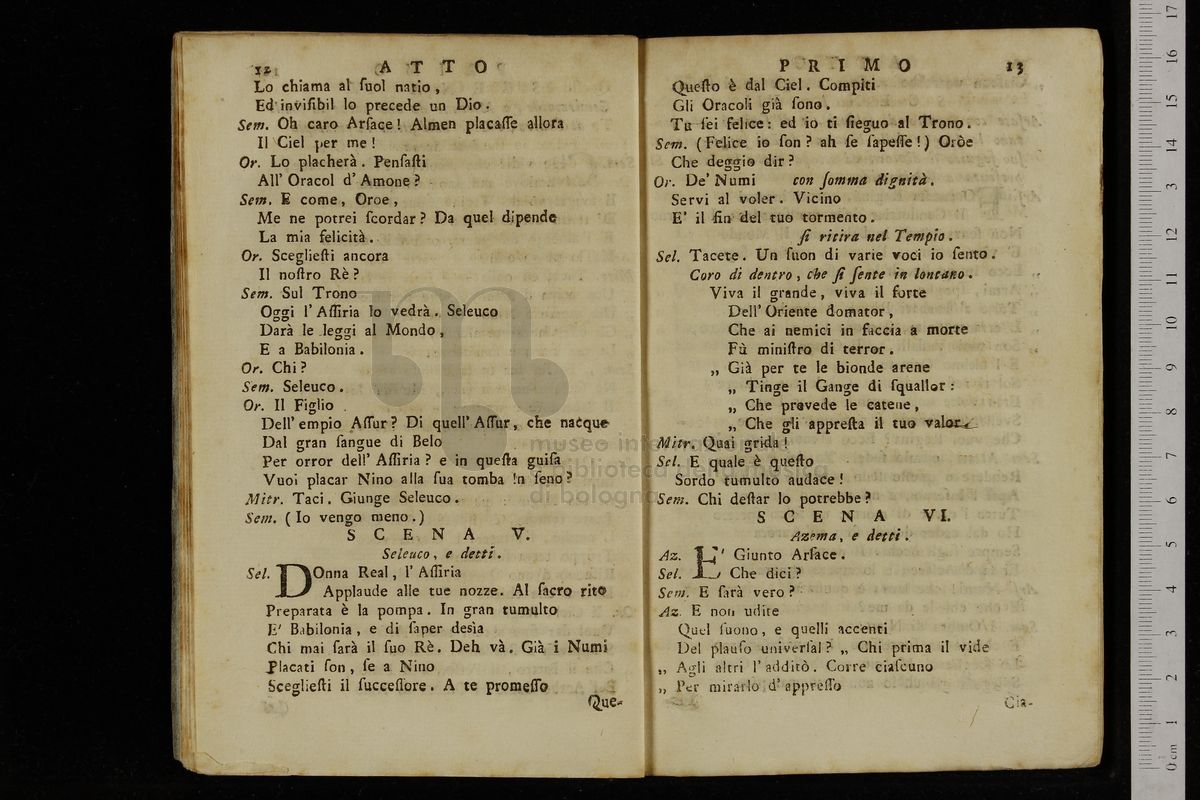 12 A T T O
Lo chiama al ſuol natio,
Ed inviſibil lo precede un Dio.
Sem. Oh caro Arſace! Almen placaſſe allora
Il Ciel per me!
Or. Lo placherà. Penſaſti
All' Oracol d' Amone?
Sem. E come, Oroe,
Me ne potrei ſcordar? Da quel dipende
La mia felicità.
Or. Scegliesti ancora
Il noſtro Rè?
Sem. Sul Trono
Oggi l' Aſſiria lo vedrà. Seleuco
Darà le leggi al Mondo,
E a Babilonia.
Or. Chi?
Sem. Seleuco.
Or. Il Figlio
Dell' empio Aſſur? Di quell' Aſſur, che nacque
Dal gran ſangue di Belo
Per orror dell' Aſſiria? e in queſta guiſa
Vuoi placar Nino alla ſua tomba in ſeno?
Mitr. Taci. Giunge Seleuco.
Sem. (Io vengo meno.)
S C E N A V.
Seleuco, e detti.
Sel. DOnna Real, l' Aſſiria
Applaude alle tue nozze. Al ſacro rito
Preparata è la pompa. In gran tumulto
E' Babilonia, e di ſaper desìa
Chi mai ſarà il ſuo Rè. Deh và. Già i Numi
Placati ſon, ſe a Nino
Sceglieſti il ſucceſſore. A te promeſſo
Que-
P R I M O 13
Queſto è dal Ciel. Compiti
Gli Oracoli già ſono.
Tu ſei felice: ed io ti ſieguo al Trono.
Sem. (Felice io ſon? ah ſe ſapeſſe!) Oròe
Che deggio dir?
Or. De' Numi con ſomma dignità.
Servi al voler. Vicino
E' il fin del tuo tormento.
ſi ritira nel Tempio.
Sel. Tacete. Un ſuon di varie voci io ſento.
Coro di dentro, che ſi ſente in lontano.
Viva il grande, viva il forte
Dell' Oriente domator,
Che ai nemici in faccia a morte
Fù miniſtro di terror.
„ Già per te le bionde arene
„ Tinge il Gange di ſquallor:
„ Che prevede le catene,
„ Che gli appreſta il tuo valor.
Mitr. Quai grida!
Sel. E quale è queſto
Sordo tumulto audace!
Sem. Chi deſtar lo potrebbe?
S C E N A VI.
Azema, e detti.
Az. E' Giunto Arſace.
Sel. Che dici?
Sem. E ſarà vero?
Az. E non udite
Quel ſuono, e quelli accenti
Del plauſo univerſal? „ Chi prima il vide
„ Agli altri l' additò. Corre ciaſcuno
„ Per mirarlo d' appreſſo
Cia-
museo
biblioteca della musica
di bologna
0 cm 1 2 3 4 5 6 7 8 9 10 11 12 13 14 15 16 17